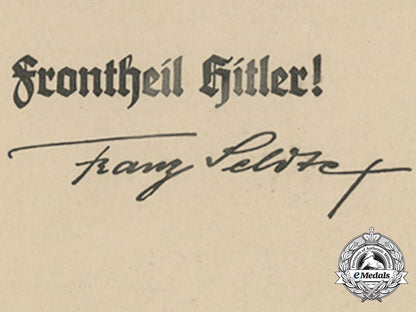 Frontheil Hitler!
Franz Seldte
eMedals